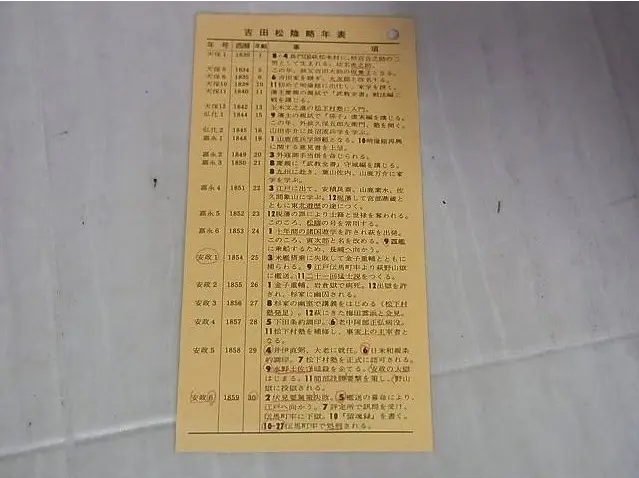 吉田松陰略年表
年号 西暦 年齢 事項
天保1 1830 1 8・4長門国萩松本村に、杉百合之助の二
男として生まれる。
天保5 1834 5 この年、叔父吉田大助の仮養子となる。
天保6 1835 6 6吉田家を嗣ぎ、大次郎と改名する。
天保10 1839 10 11初めて明倫館に出仕し、家学を講ず。
天保11 1840 11 藩主慶親の親試で『武教全書』戦法編三
戦を講じる。
天保13 1842 13 玉木文之進の松下村塾に入門。
弘化1 1844 15 9藩主の親試で『孫子』虚実編を講じる。
この年、外叔久保五郎左衛門、塾を開く。
弘化2 1845 16 山田亦介に長沼流兵学を学ぶ。
嘉永1 1848 19 1山鹿流兵学師範となる。10明倫館再興
に関する意見書を上呈。
嘉永2 1849 20 3外寇御手当掛を命じられる。
嘉永3 1850 21 8慶親に『武教全書』守城編を講じる。
8九州に赴き、葉山佐内、山鹿万介に家
学を学ぶ。
嘉永4 1851 22 3江戸に出て、安積艮斎、山鹿素水、佐
久間象山に学ぶ。12脱藩して宮部鼎蔵と
ともに東北遊歴の途につく。
嘉永5 1852 23 12脱藩の罪により士籍と世禄を奪われる。
このころ、松陰の号を常用する。
嘉永6 1853 24 1十年間の諸国遊学を許され萩を出発。
このころ、寅次郎と名を改める。9露艦
に乗船するため、長崎へ向かう。
安政1 1854 25 3米艦搭乗に失敗して金子重輔とともに
捕られる。9江戸伝馬町牢より萩野山獄
に檻送。11二十一回猛士説をつくる。
安政2 1855 26 1金子重輔、岩倉獄で病死。12出獄を許
され、杉家に幽囚される。
安政3 1856 27 8杉家の幽室で講義をはじめる(松下村
塾発足)。12萩にきた梅田雲浜と会見。
安政4 1857 28 5下田条約調印。6老中阿部正弘病没。
11松下村塾を補修し、事実上の主宰者と
なる。
安政5 1858 29 4井伊直弼、大老に就任。6日米和親条
約調印。7松下村塾を正式に認可される。
9水野土佐守暗殺を企てる。安政の大獄
はじまる。11間部詮勝要撃を策し、野山
獄に投獄される。
安政6 1859 30 2伏見要駕策失敗。5檻送の幕命により、
江戸へ向かう。7評定所で訊問を受け、
伝馬町牢に下獄。10『留魂録』を書く。
10・27伝馬町牢で処刑される。